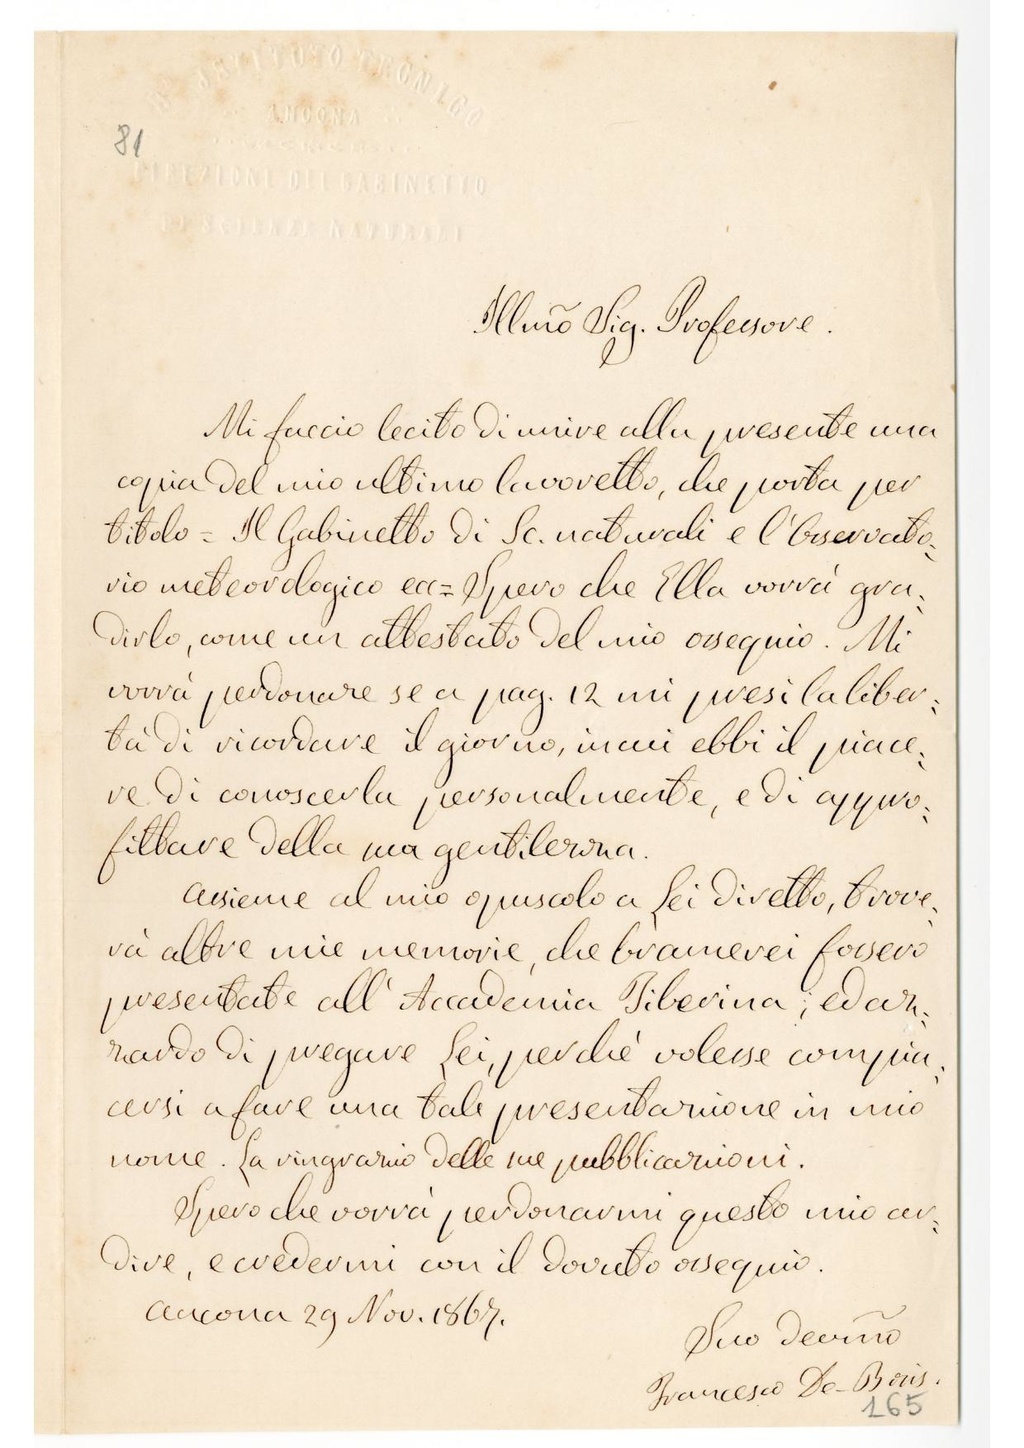 R. ISTITUTO TECNICO
ANCONA
DIREZIONE DEL GABINETTO
DI SCIENZE NATURALI
81
Illmo Sig. Professore.
Mi faccio lecito di unire alla presente una
copia del mio ultimo lavoretto, che porta per
titolo = Il Gabinetto di Sc. naturali e l'Osservato=
rio meteorologico ecc= Spero che Ella vorrà gra=
dirlo, come un attestato del mio ossequio. Mi
vorrà perdonare se a pag. 12 mi presi la liber=
tà di ricordare il giorno, in cui ebbi il piace=
re di conoscerla personalmente, e di appro=
fittare della sua gentilezza.
Assieme al mio opuscolo a Lei diretto, trove=
rà altre mie memorie, che bramerei fossero
presentate all'Accademia Tiberina; ed az=
zardo di pregare Lei, perché volesse compia=
cersi a fare una tale presentazione in mio
nome. La ringrazio delle sue pubblicazioni.
Spero che vorrà perdonarmi questo mio ar=
dire, e credermi con il dovuto ossequio.
Ancona 29 Nov. 1867.
Suo devmo
Francesco De-Bosis.
165